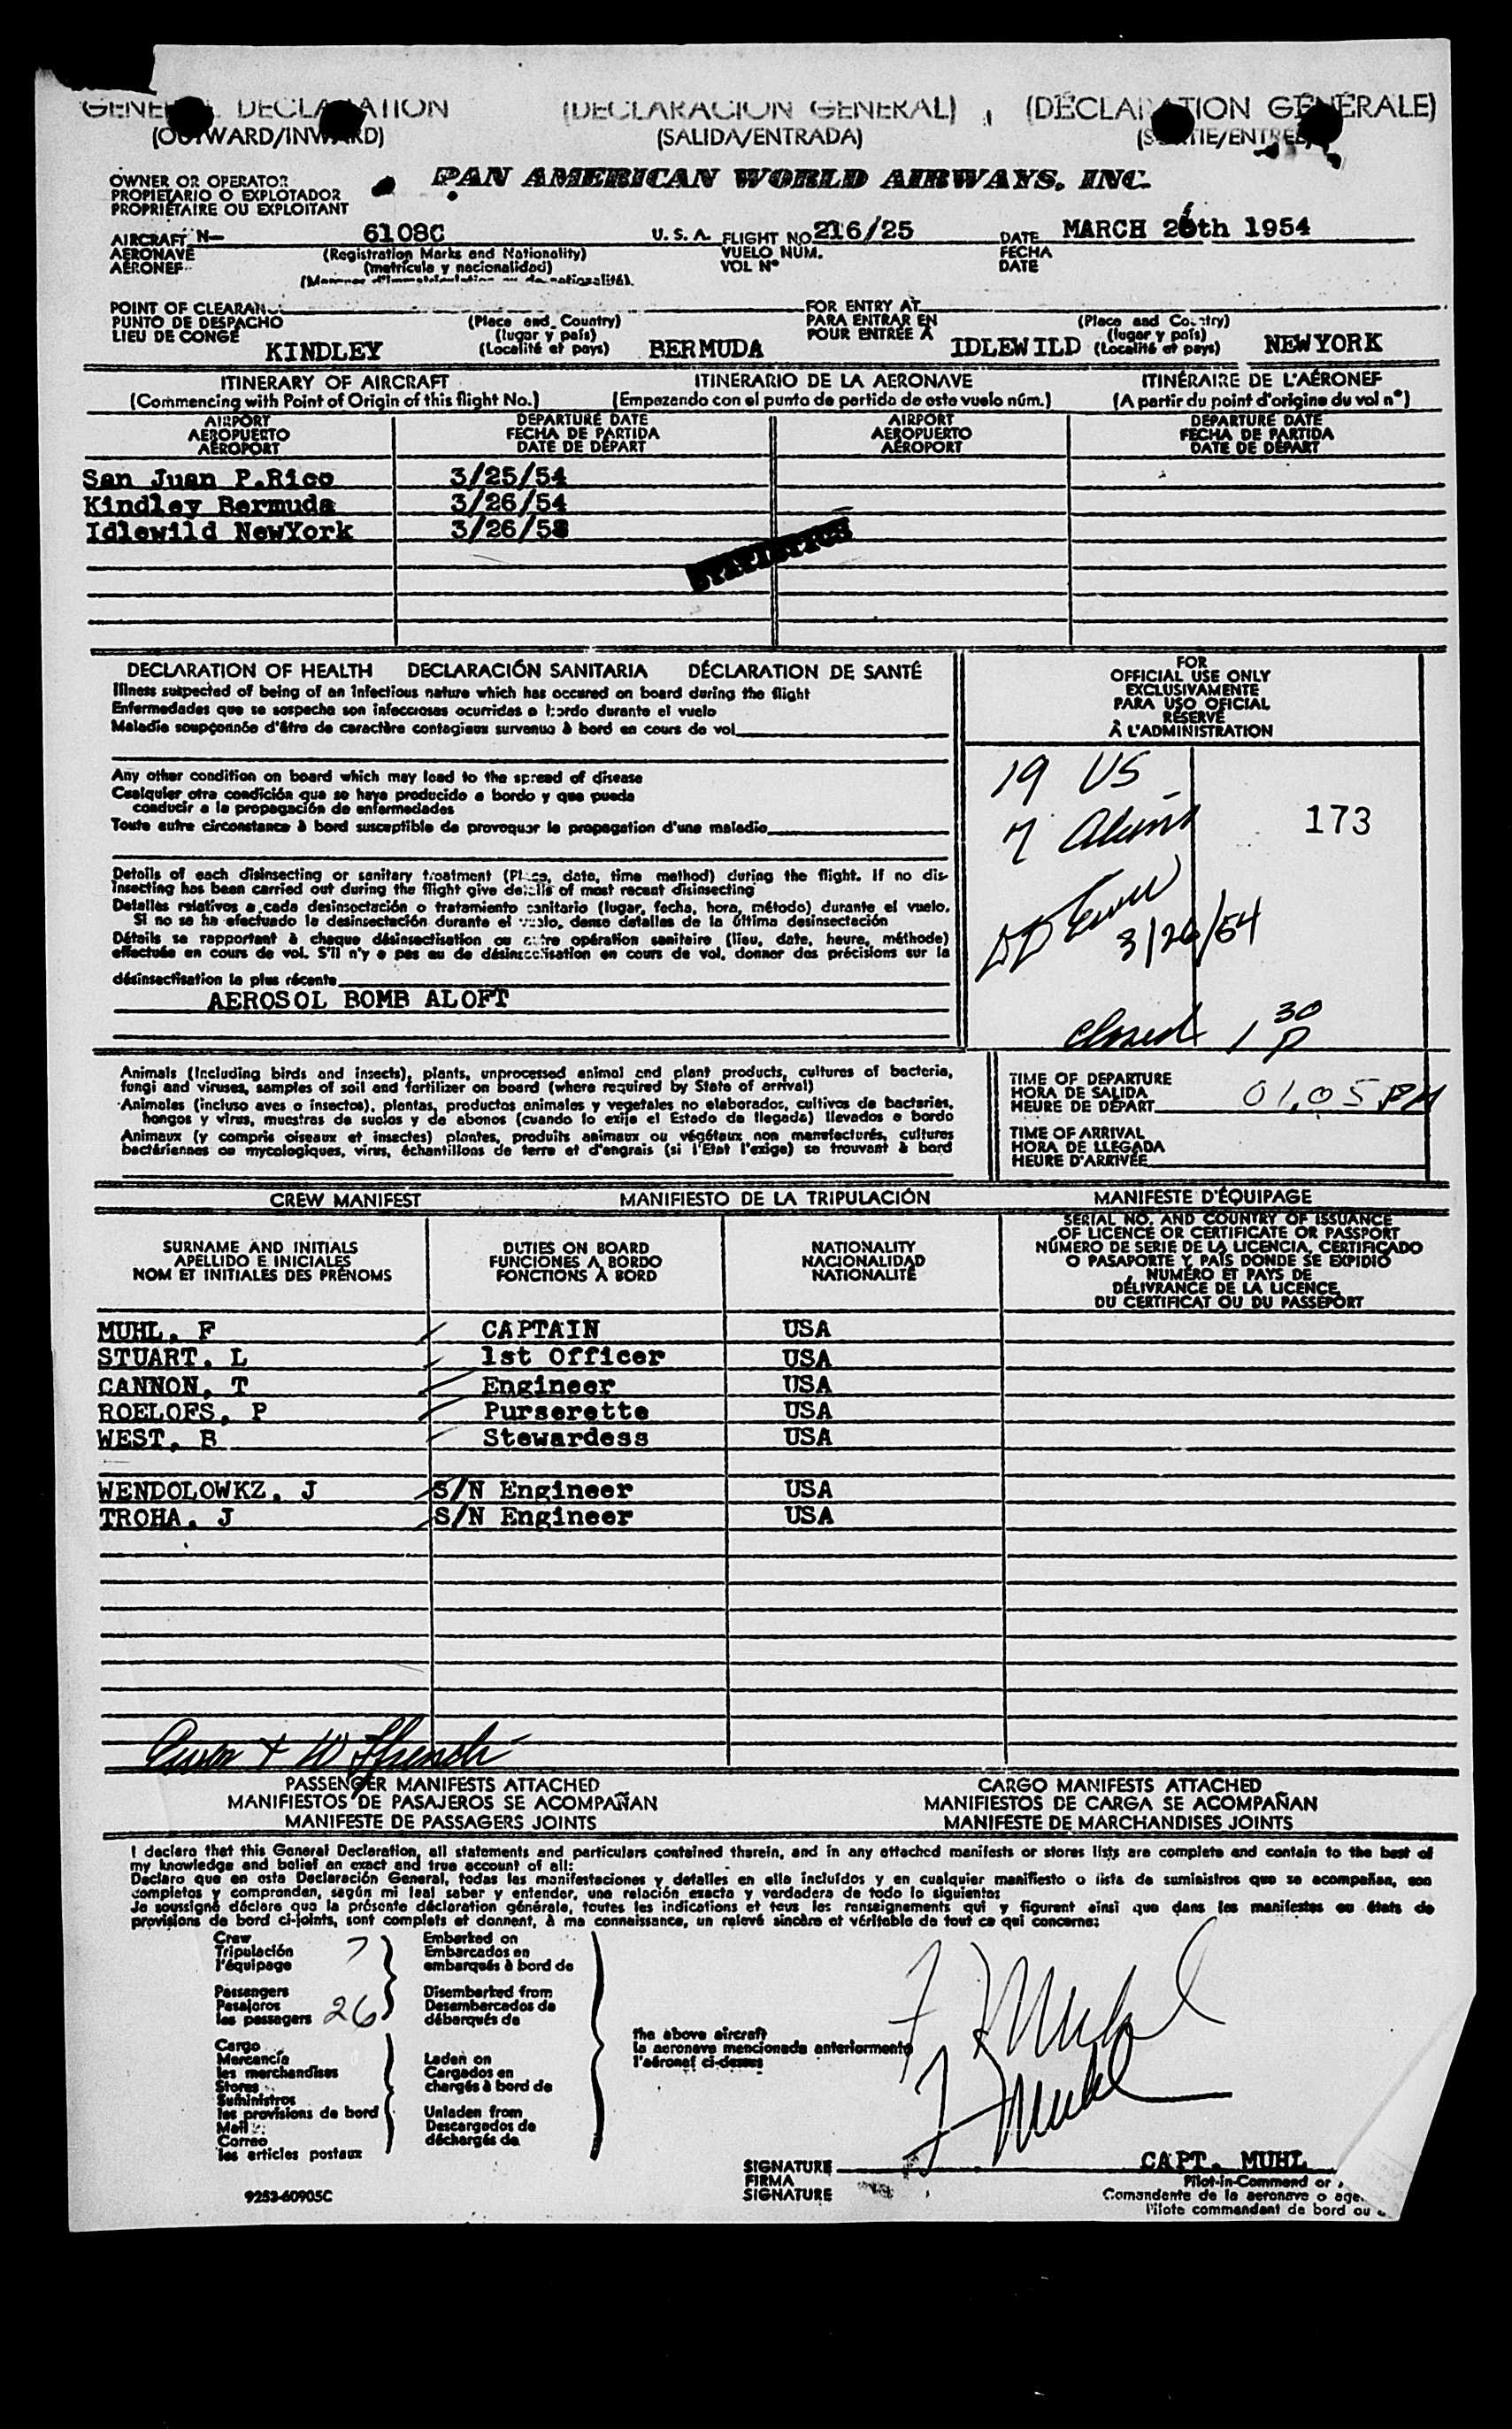 GENERAL DECLARATION (DECLARACION GENERAL) (DÉCLARATION GÉNÉRALE)
(OUTWARD/INWARD) (SALIDA/ENTRADA) (SORTIE/ENTREE)
OWNER OR OPERATOR
PROPIETARIO O EXPLOTADOR
PROPRIÉTAIRE OU EXPLOITANT
PAN AMERICAN WORLD AIRWAYS, INC.
AIRCRAFT N- 6108C U. S. A. FLIGHT NO. 216/25 DATE MARCH 26th 1954
AERONAVE (Registration Marks and Nationality) VUELO NUM. FECHA
AÉRONEF (matrícula y nacionalidad) VOL Nº DATE
(Marques d'immatriculation ou de nationalité)
POINT OF CLEARANCE FOR ENTRY AT
PUNTO DE DESPACHO (Place and Country) PARA ENTRAR EN (Place and Country)
LIEU DE CONGÉ (lugar y país) POUR ENTRÉE A (lugar y país)
KINDLEY (Localité et pays) BERMUDA IDLEWILD (Localité et pays) NEWYORK
ITINERARY OF AIRCRAFT ITINERARIO DE LA AERONAVE ITINÉRAIRE DE L'AÉRONEF
(Commencing with Point of Origin of this flight No.) (Empezando con el punto de partida de este vuelo núm.) (A partir du point d'origine du vol nº)
AIRPORT DEPARTURE DATE AIRPORT DEPARTURE DATE
AEROPUERTO FECHA DE PARTIDA AEROPUERTO FECHA DE PARTIDA
AÉROPORT DATE DE DÉPART AÉROPORT DATE DE DÉPART
San Juan P.Rico 3/25/54
Kindley Bermuda 3/26/54
Idlewild NewYork 3/26/58
STATISTICS
DECLARATION OF HEALTH DECLARACIÓN SANITARIA DÉCLARATION DE SANTÉ
Illness suspected of being of an infectious nature which has occured on board during the flight
Enfermedades que se sospecha son infecciosas ocurridas a bordo durante el vuelo
Maladie soupçonnée d'être de caractère contagieux survenue à bord en cours de vol
Any other condition on board which may lead to the spread of disease
Cualquier otra condición que se haya producido a bordo y que pueda
conducir a la propagación de enfermedades
Toute autre circonstance à bord susceptible de provoquer la propagation d'une maladie
Details of each disinsecting or sanitary treatment (Place, date, time method) during the flight. If no dis-
insecting has been carried out during the flight give details of most recent disinsecting
Detalles relativos a cada desinsectación o tratamiento sanitario (lugar, fecha, hora, método) durante el vuelo.
Si no se ha efectuado la desinsectación durante el vuelo, dense detalles de la última desinsectación
Détails se rapportant à chaque désinsectisation ou autre opération sanitaire (lieu, date, heure, méthode)
effectuée en cours de vol. S'il n'y a pas eu de désinsectisation en cours de vol, donner des précisions sur la
désinsectisation la plus récente
AEROSOL BOMB ALOFT
FOR
OFFICIAL USE ONLY
EXCLUSIVAMENTE
PARA USO OFICIAL
RÉSERVÉ
À L'ADMINISTRATION
19 US
7 Aliens
173
3/26/54
Closed 1 30 P
Animals (Including birds and insects), plants, unprocessed animal and plant products, cultures of bacteria,
fungi and viruses, samples of soil and fertilizer on board (where required by State of arrival)
Animales (incluso aves o insectos), plantas, productos animales y vegetales no elaborados, cultivos de bacterias,
hongos y virus, muestras de suelos y de abonos (cuando lo exija el Estado de llegada) llevados a bordo
Animaux (y compris oiseaux et insectes) plantes, produits animaux ou végétaux non manufacturés, cultures
bactériennes ou mycologiques, virus, échantillons de terre et d'engrais (si l'Etat l'exige) se trouvant à bord
TIME OF DEPARTURE
HORA DE SALIDA
HEURE DE DÉPART 01.05 PM
TIME OF ARRIVAL
HORA DE LLEGADA
HEURE D'ARRIVÉE
CREW MANIFEST MANIFIESTO DE LA TRIPULACIÓN MANIFESTE D'ÉQUIPAGE
SURNAME AND INITIALS
APELLIDO E INICIALES
NOM ET INITIALES DES PRÉNOMS
DUTIES ON BOARD
FUNCIONES A BORDO
FONCTIONS À BORD
NATIONALITY
NACIONALIDAD
NATIONALITÉ
SERIAL NO. AND COUNTRY OF ISSUANCE
OF LICENCE OR CERTIFICATE OR PASSPORT
NÚMERO DE SERIE DE LA LICENCIA, CERTIFICADO
O PASAPORTE Y PAÍS DONDE SE EXPIDIÓ
NUMÉRO ET PAYS DE
DÉLIVRANCE DE LA LICENCE,
DU CERTIFICAT OU DU PASSEPORT
MUHL, F CAPTAIN USA
STUART, L 1st Officer USA
CANNON, T Engineer USA
ROELOFS, P Purserette USA
WEST, B Stewardess USA
WENDOLOWKZ, J S/N Engineer USA
TROHA, J S/N Engineer USA
PASSENGER MANIFESTS ATTACHED CARGO MANIFESTS ATTACHED
MANIFIESTOS DE PASAJEROS SE ACOMPAÑAN MANIFIESTOS DE CARGA SE ACOMPAÑAN
MANIFESTE DE PASSAGERS JOINTS MANIFESTE DE MARCHANDISES JOINTS
I declare that this General Declaration, all statements and particulars contained therein, and in any attached manifests or stores lists are complete and contain to the best of
my knowledge and belief an exact and true account of all:
Declaro que en esta Declaración General, todas las manifestaciones y detalles en ella incluídos y en cualquier manifiesto o lista de suministros que se acompañan, son
completos y comprenden, según mi leal saber y entender, una relación exacta y verdadera de todo lo siguiente:
Je soussigné déclare que la présente déclaration générale, toutes les indications et tous les renseignements qui y figurent ainsi que dans les manifestes ou états de
provisions de bord ci-joints, sont complets et donnent, à ma connaissance, un relevé sincère et véritable de tout ce qui concerne:
Crew Embarked on
Tripulación 7 Embarcados en
l'équipage embarqués à bord de
Passengers Disembarked from
Pasajeros Desembarcados de
les passagers 26 débarqués de
the above aircraft
la aeronave mencionada anteriormente
l'aéronef ci-dessus
Cargo
Mercancía Laden on
les marchandises Cargados en
Stores chargés à bord de
Suministros
les provisions de bord Unladen from
Mail Descargados de
Correo déchargés de
les articles postaux
F Muhl
F Muhl
SIGNATURE CAPT. MUHL
FIRMA Pilot-in-Command or
SIGNATURE Comandante de la aeronave o age
Pilote commandant de bord ou
9253-60905C